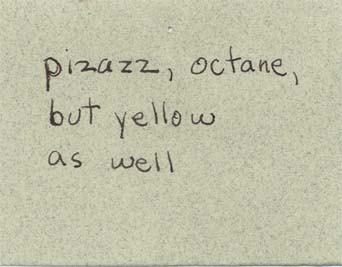 pizazz, octane,
but yellow
as well